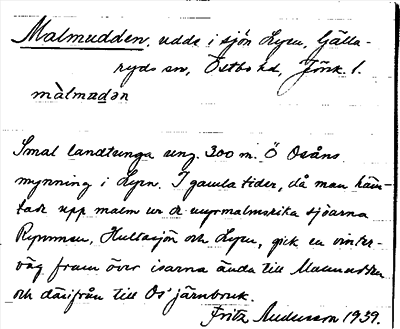 Malmudden, udde i sjön Lyen, Gälla-
ryds sn, Östbo hd, Jönk. l.
màlmadən
Smal landtunga ung. 300 m. Ö Osåns
mynning i Lyen. I gamla tider, då man häm-
tade upp malm ur de myrmalmsrika sjöarna
Rymmen, Hultasjön och Lyen, gick en vinter-
väg fram över isarna ända till Malmudden
och därifrån till Os' järnbruk.
Fritz Andersson 1939.